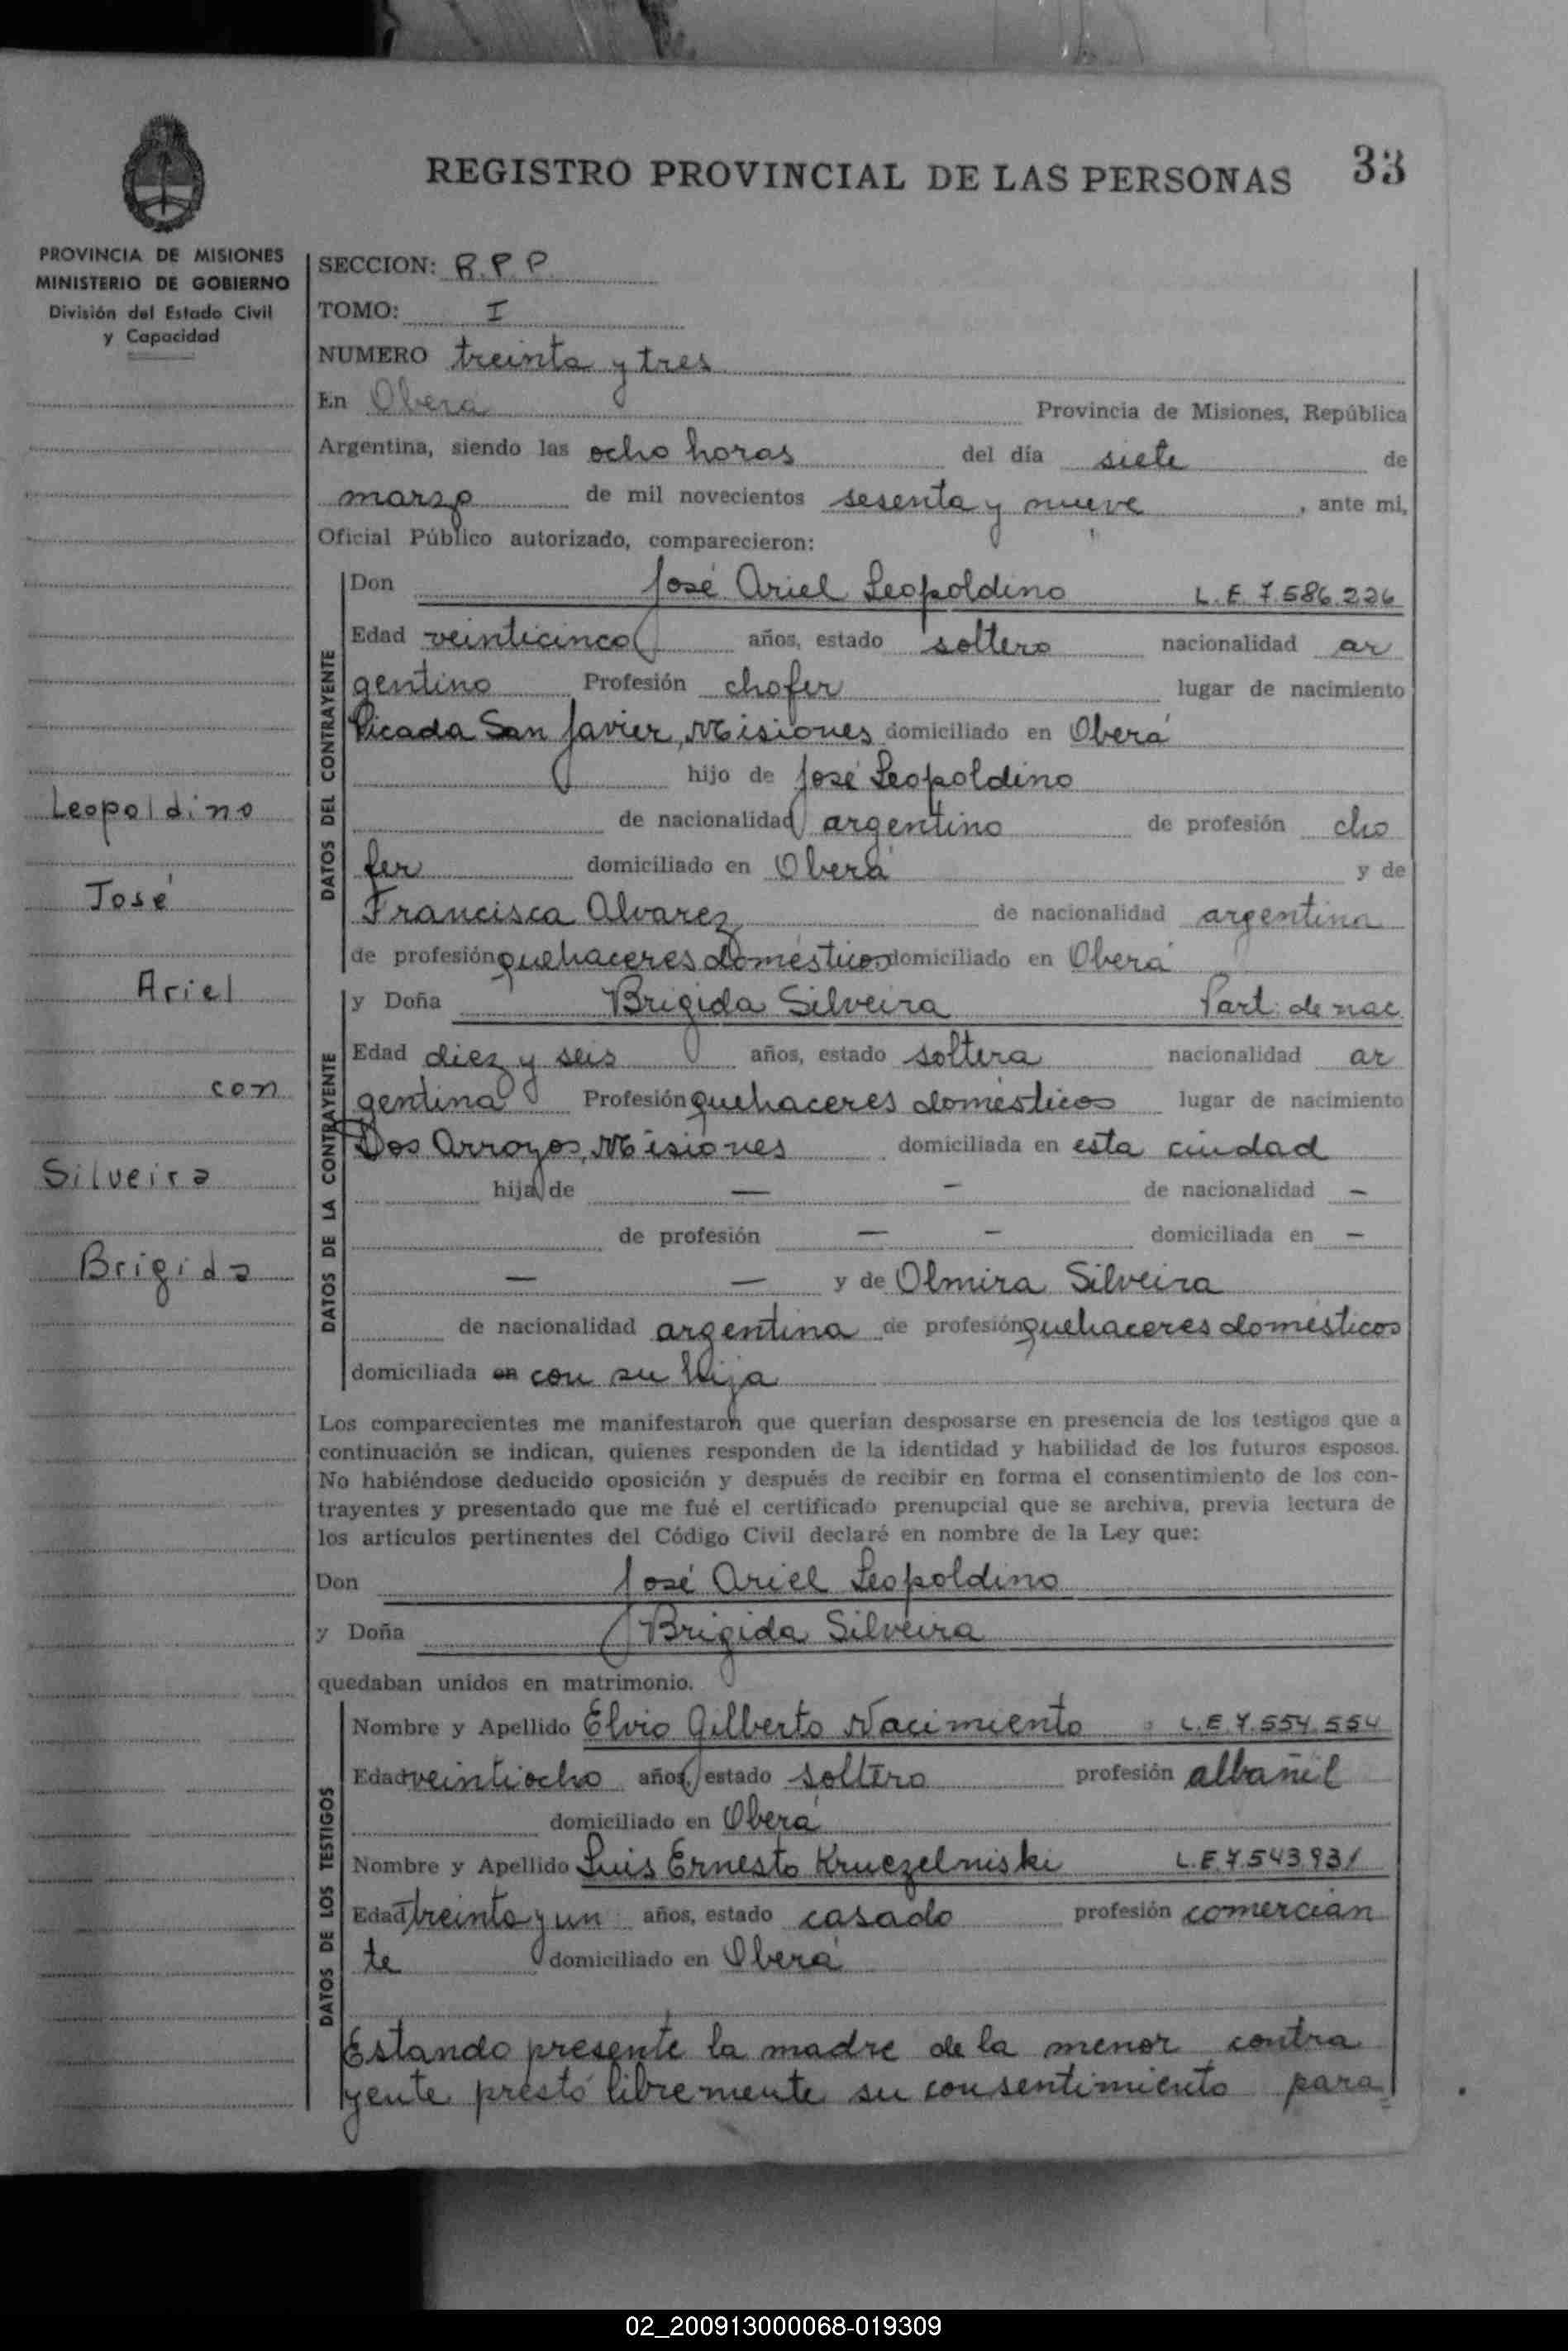 REGISTRO PROVINCIAL DE LAS PERSONAS 33
PROVINCIA DE MISIONES
MINISTERIO DE GOBIERNO
División del Estado Civil
y Capacidad
Leopoldino
José
Ariel
con
Silveira
Brigida
SECCION: R.P.P.
TOMO: I
NUMERO treinta y tres
En Oberá Provincia de Misiones, República
Argentina, siendo las ocho horas del día siete de
marzo de mil novecientos sesenta y nueve, ante mi,
Oficial Público autorizado, comparecieron:
DATOS DEL CONTRAYENTE
Don José Ariel Leopoldino L.E. 7.586.226
Edad veinticinco años, estado soltero nacionalidad ar
gentino Profesión chofer lugar de nacimiento
Picada San Javier, Misiones domiciliado en Oberá
hijo de José Leopoldino
de nacionalidad argentino de profesión cho
fer domiciliado en Oberá y de
Francisca Alvarez de nacionalidad argentina
de profesión quehaceres domésticos domiciliado en Oberá
DATOS DE LA CONTRAYENTE
y Doña Brigida Silveira Part. de nac.
Edad diez y seis años, estado soltera nacionalidad ar
gentina Profesión quehaceres domésticos lugar de nacimiento
Dos Arroyos, Misiones domiciliada en esta ciudad
hija de — - de nacionalidad -
de profesión — - domiciliada en -
— — y de Olmira Silveira
de nacionalidad argentina de profesión quehaceres domésticos
domiciliada en con su hija
Los comparecientes me manifestaron que querían desposarse en presencia de los testigos que a
continuación se indican, quienes responden de la identidad y habilidad de los futuros esposos.
No habiéndose deducido oposición y después de recibir en forma el consentimiento de los con-
trayentes y presentado que me fué el certificado prenupcial que se archiva, previa lectura de
los artículos pertinentes del Código Civil declaré en nombre de la Ley que:
Don José Ariel Leopoldino
y Doña Brigida Silveira
quedaban unidos en matrimonio.
DATOS DE LOS TESTIGOS
Nombre y Apellido Elvio Gilberto Nacimiento L.E. 7.554.554
Edad veintiocho años, estado soltero profesión albañil
domiciliado en Oberá
Nombre y Apellido Luis Ernesto Kruezelniski L.E. 7.543.931
Edad treinta y un años, estado casado profesión comercian
te domiciliado en Oberá
Estando presente la madre de la menor contra
yente prestó libremente su consentimiento para
02_200913000068-019309